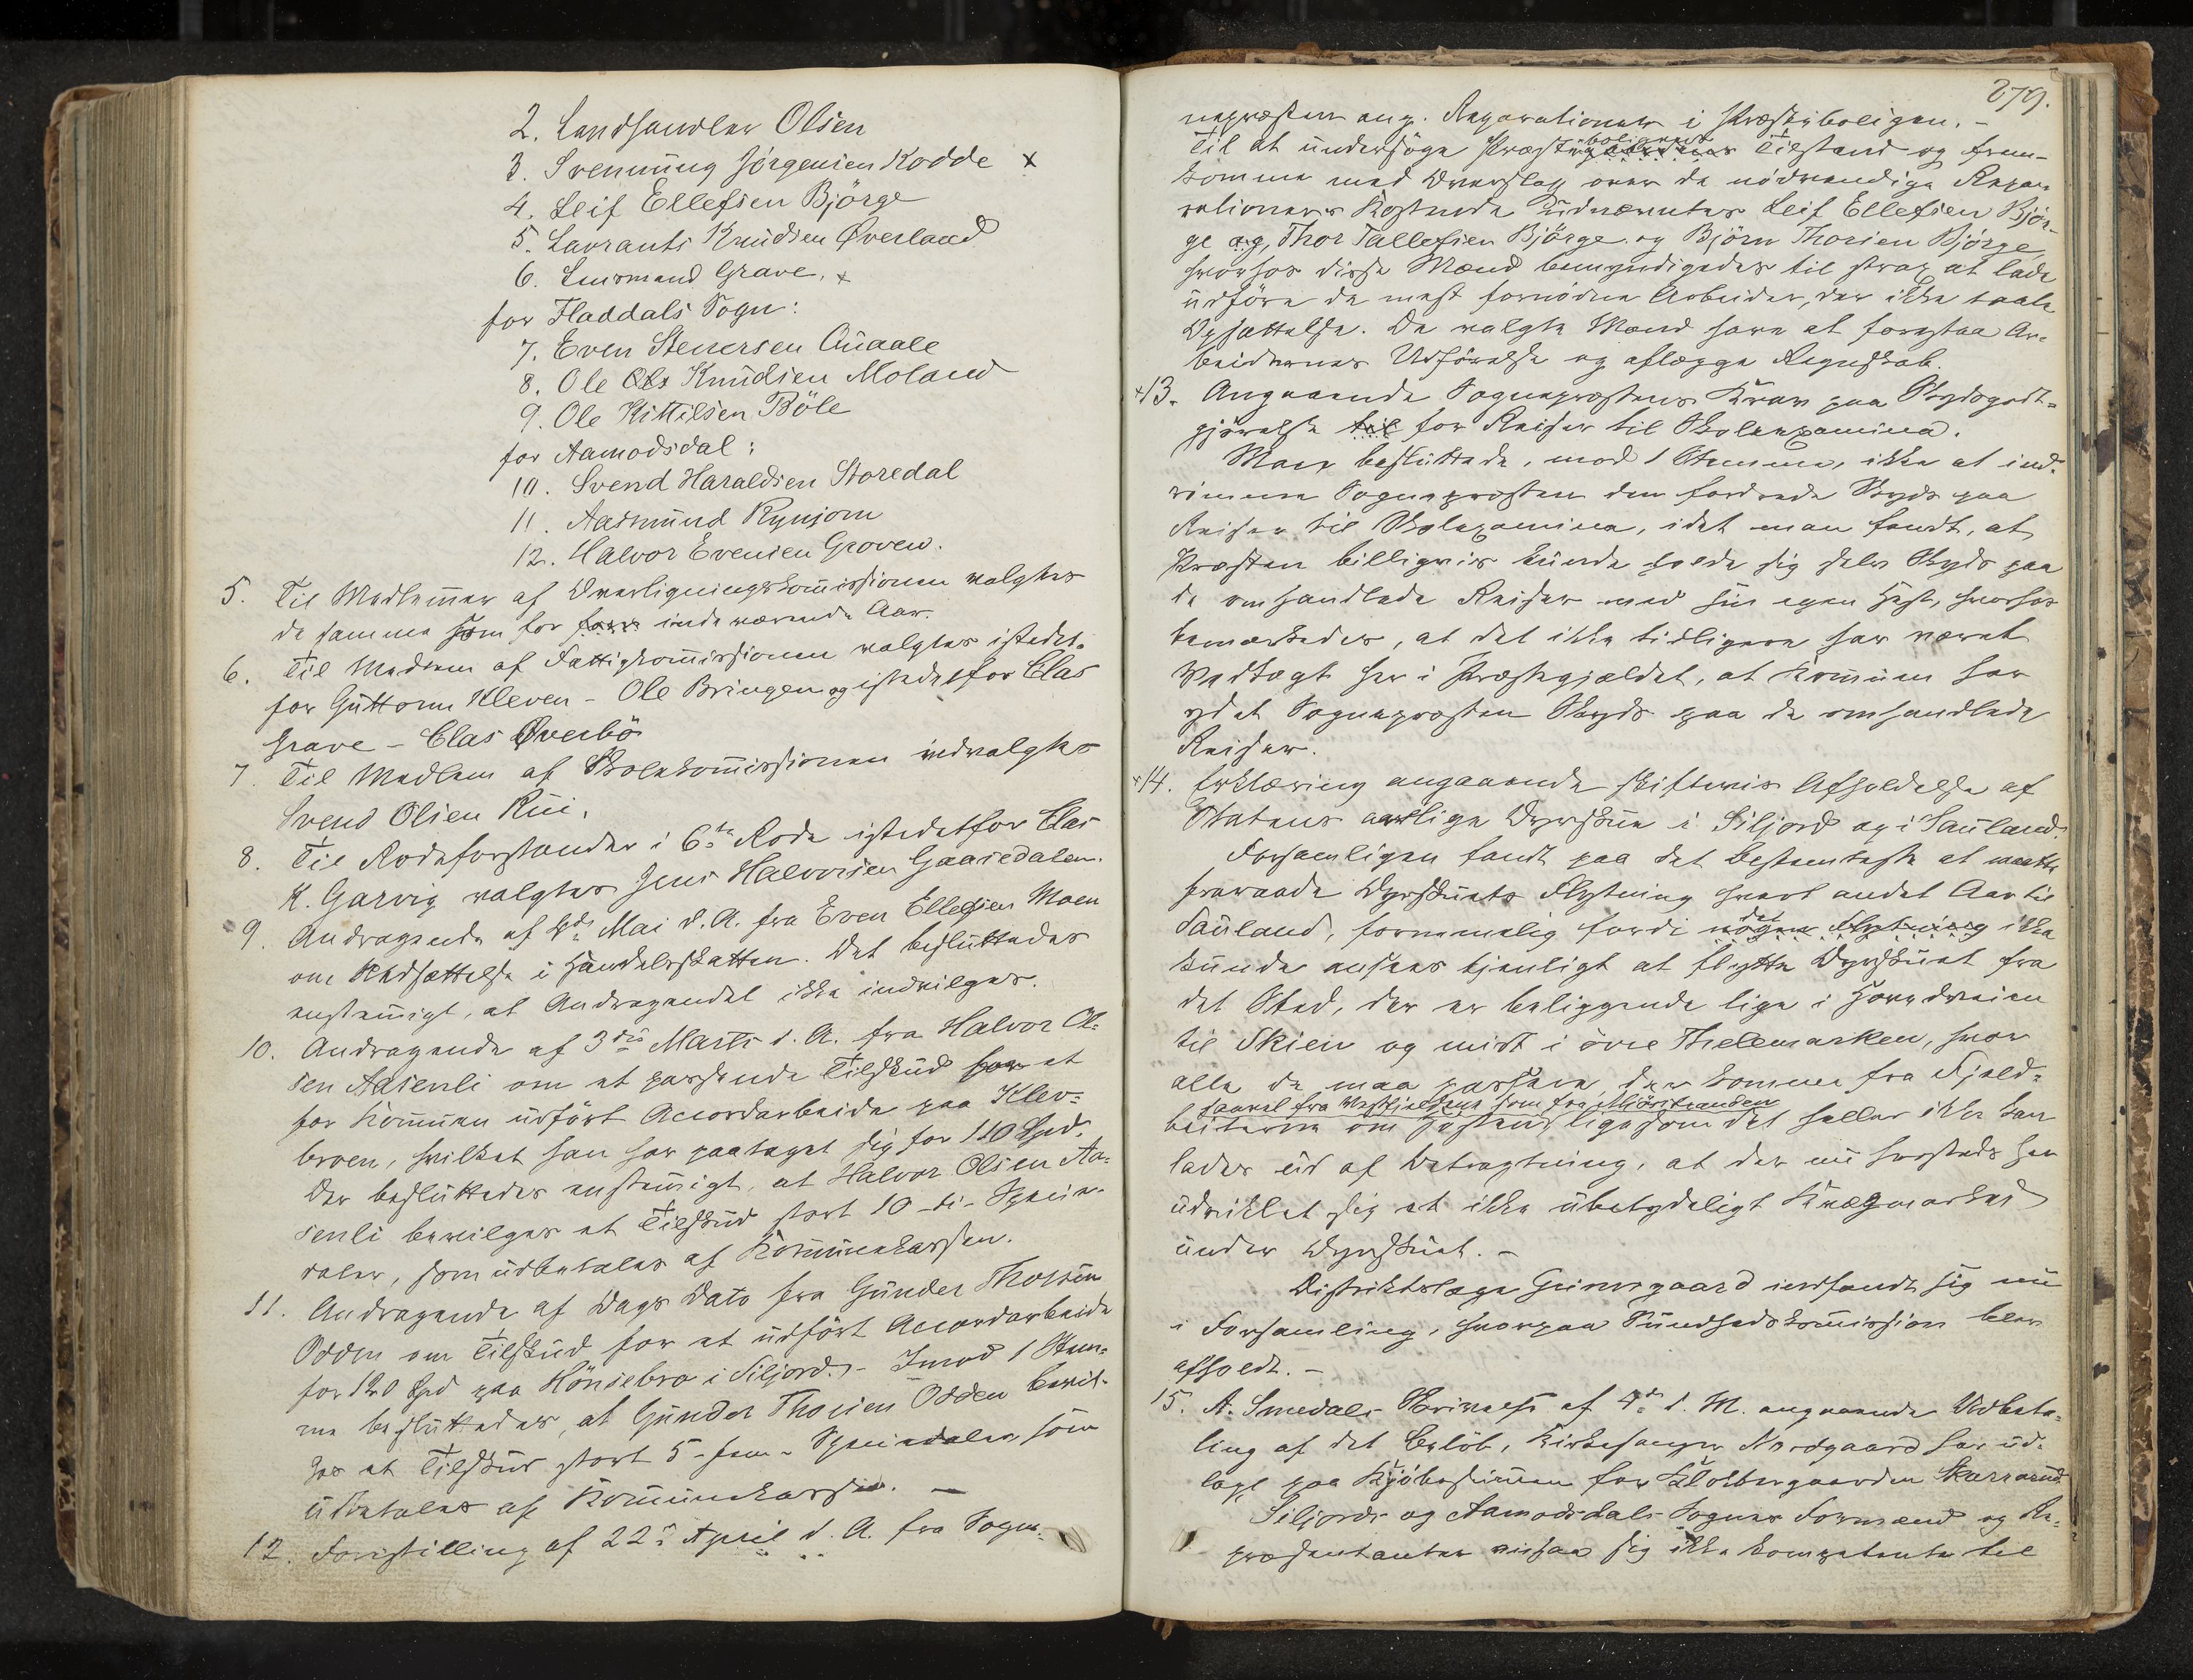 2. Landhandler Olsen
3. Svennung Jörgensen Kodde x
4. Leif Ellefsen Björge
5. Lavrants Knudsen Överland
6. Lensmand Grave. x
for Fladdals Sogn:
7. Even Stenersen Aaale
8. Ole Ols Knudsen Moland
9. Ole Kittilsen Böle
for Aamodsdal:
10. Svend Haraldsen Storedal
11. Aasmund Rynjom
12. Halvor Evensen Groven.
5. Til Medlemmer af Overligningskommissionen valgtes
de samme som for inde værende Aar.
6. Til Medlem af Fattigkommissionen valgtes istedet-
for Guttorm Kleven - Ole Bringen og istedetfor Clas
Grave - Clas Överbö
7. Til Medlem af Skolekommissionen indvalgtes
Svend Olsen Rui.
8. Til Rodeforstander i 6te Rode istedetfor Clas
K. Garvig valgtes Jens Halvorsen Gaasedalen.
9. Andragende af 4de Mai d. A. fra Even Ellefsen Moen
om Nedsættelse i Handelsskatten. Det besluttedes
enstemmigt, at Andragendet ikke indvilges.
10. Andragende af 3die Marts d. A. fra Halvor Ol-
sen Aasenli om et passende Tilskud for et
for Kommunen udført Accordarbeide paa Klev-
broen, hvilket han har paataget sig for 110 Spd.
Der besluttedes enstemmigt, at Halvor Olsen Aa-
senli bevilges et Tilskud stort 10 - ti - Specie-
daler, som udbetales af Kommunekassen.
11. Andragende af Dags Dato fra Gunder Thorsen
Odden om Tilskud for et udført Accordarbeide
for 120 Spd paa Hönsebro i Siljord. - Imod 1 Stem-
me besluttedes, at Gunder Thorsen Odden bevil-
ges et Tilskud stort 5 - fem - Speciedaler, som
udbetales af Kommunekassen. -
12. Forestilling af 22de April d. A. fra Sogne-
279.
nepræsten ang. Reparationer i Præsteboligen. -
boligens
Til at undersöge Præstegaardens Tilstand og frem-
komme med Overslag over de nödvendige Repa-
rationers Kostende udnævntes Leif Ellefsen Björ-
ge og, Thor Tallefsen Björge og Björn Thorsen Björge,
hvorhos disse Mænd bemyndigedes til strax at lade
udföre de mest fornödne Arbeider, der ikke taale
Opsættelse. De valgte Mænd have at forestaa Ar-
beidernes Udförelse og aflægge Regnskab.
x13. Angaaende Sognepræstens Krav paa Skydsgodt-
gjörelse til for Reiser til Skoleexamina.
Man besluttede, mod 1 Stemme, ikke at ind-
römme Sognepræsten den fordrede Skyds paa
Reiser til Skolexamina, idet man fandt, at
Præsten billigvis kunde holde sig selv Skyds paa
de omhandlede Reiser med sin egen Hest, hvorhos
bemærkedes, at det ikke tidligere har været
Vedtægt her i Præstegjældet, at Kommunen har
ydet Sognepræsten Skyds paa de omhandlede
Reiser.
x14. Erklæring angaaende skiftevis Afholdelse af
Statens aarlige Dyrskue i Siljord og i Sauland.
Forsamligen fandt paa det bestemteste at maatte
fraraade Dyrskuets Flytning hvert andet Aar til
det
Sauland, fornemmelig fordi nogen Flytning ikke
kunde ansees tjenligt at flytte Dyrskuet fra
det Sted, der er beliggende lige i Hovedveien
til Skien og midt i övre Thelemarken, hvor
alle de maa passere, der komme fra Fjeld-
saavel fra Vestfjeldene som fra Mjösstranden
beiterne om Hösten, ligesom det heller ikke kan
lades ud af Betragtning, at der nu hersteds har
udviklet sig et ikke ubetydeligt Kvægmarked
under Dyrskuet. -
Distriktslæge Grimsgaard indfandt sig nu
i Forsamling, hvorpaa Sundhedskommission blev
afholdt. -
15. A. Smedals Skrivelse af 4de d. M. angaaende Udbeta-
ling af det Belöb, Kirkesanger Nordgaard har ud-
lagt paa Kjöbesummen for Klokkergaarden Skarravud.
Siljords og Aamodsdals Sognes Formænd og Re-
præsentanter ansaa sig ikke kompetente til